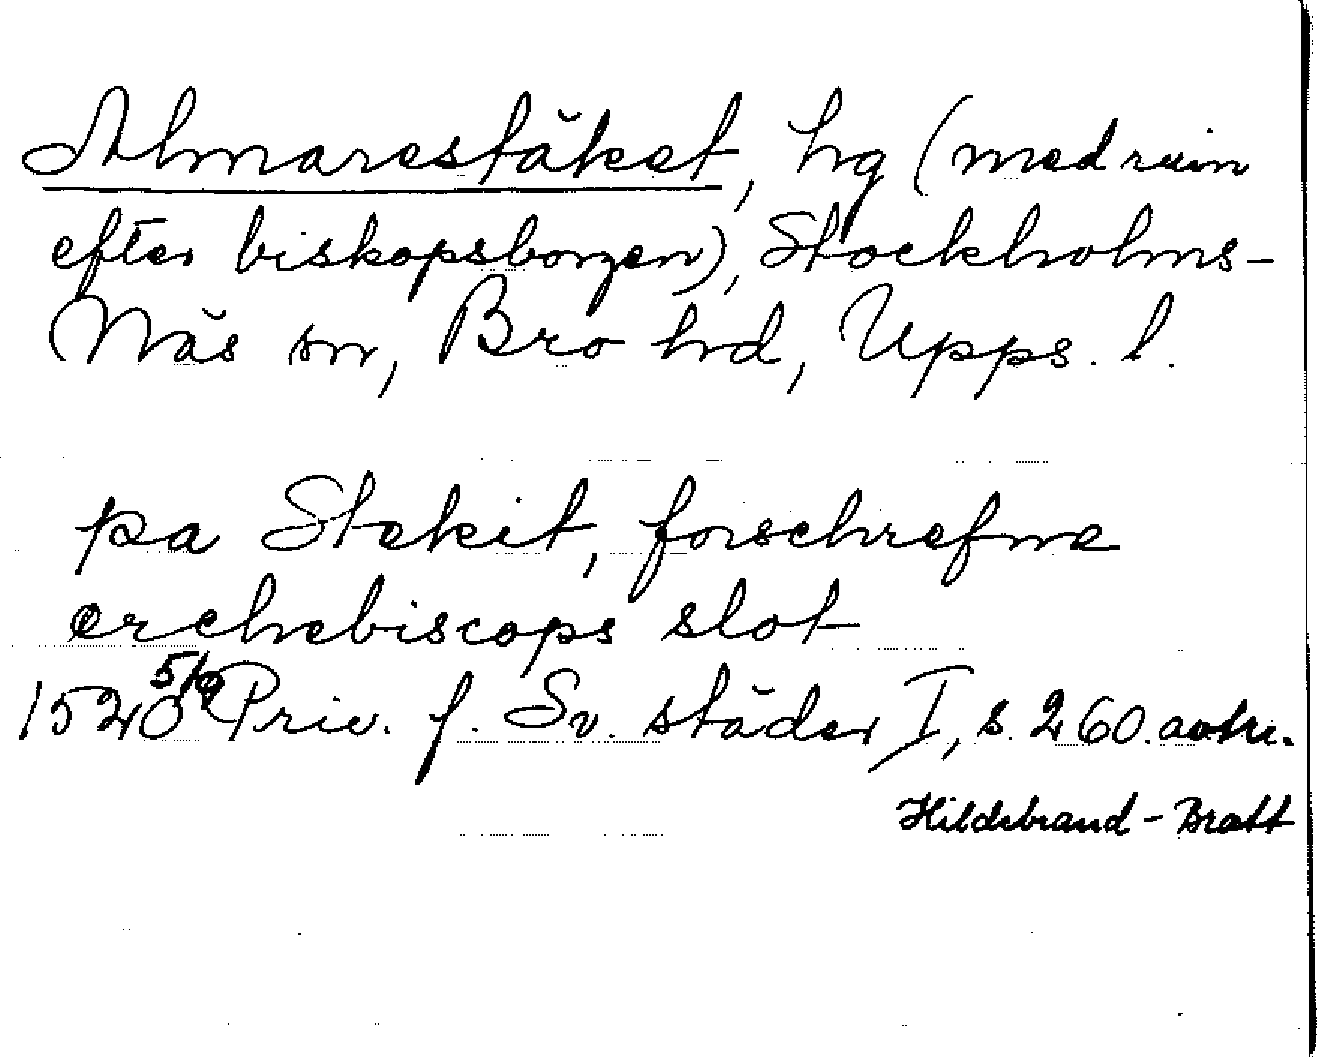 Almarestäket, hg (med ruin
efter biskopsborgen), Stockholms-
Näs sn, Bro hd, Upps. l.
pa Stekit, forschrefne
erchebiscops slot
1520 5/9 Priv. f. Sv. städer I, s. 260. avskr.
Hildebrand - Bratt